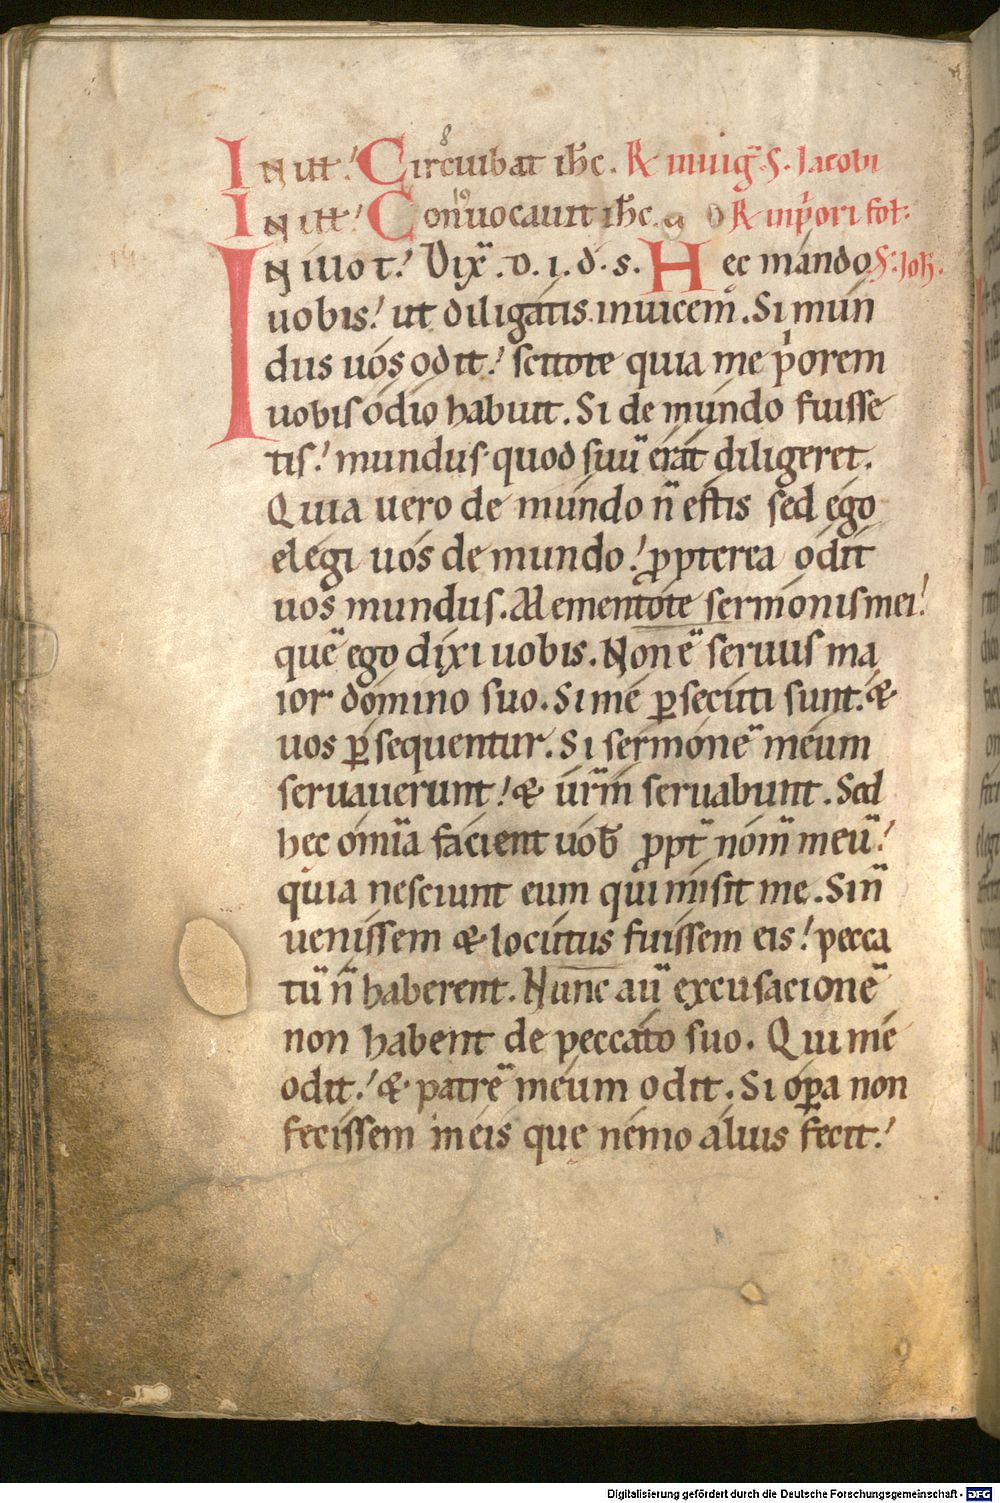 IN illt. Circuibat ihc. R in uig S. Iacobi
IN illt. Conuocauit ihc. R in pori fol.
IN illo t. Dix. d. i. d. s. Hec mando S. Ioh.
uobis. ut diligatis inuicem. Si mun
dus uos odit. scitote quia me p̄orem
uobis odio habuit. Si de mundo fuisse
tis. mundus quod suū erat diligeret.
Quia uero de mundo n̄ estis sed ego
elegi uos de mundo. ꝓpterea odit
uos mundus. Mementote sermonis mei.
quē ego dixi uobis. Non ē seruus ma
ior domino suo. Si me ꝑsecuti sunt. &
uos ꝑsequentur. Si sermonē meum
seruauerunt. & ur̄m seruabunt. Sed
hec omīa facient uob ꝓpt̄ nom̄ meū.
quia nesciunt eum qui misit me. Si n̄
uenissem & locutus fuissem eis. pecca
tū n̄ haberent. Nunc aū excusacionē
non habent de peccato suo. Qui me
odit. & patrē meum odit. Si oꝑa non
fecissem in eis que nemo alius fecit.
Digitalisierung gefördert durch die Deutsche Forschungsgemeinschaft - DFG